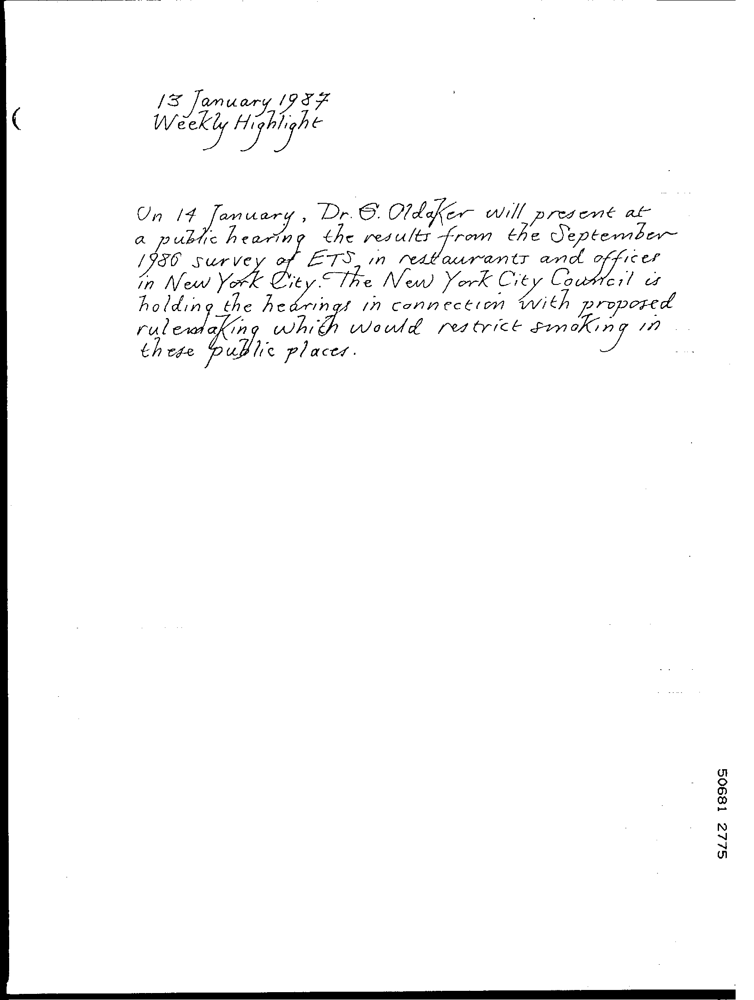 13 January 1987
Weekly Highlight
On 14 January, Dr. G. Oldaker will present at
a public hearing the results from the September
1986 survey of ETS in restaurants and offices
in New York City. The New York City Council is
holding the hearings in connection with proposed
rulemaking which would restrict smoking in
these public places.
50681 2775